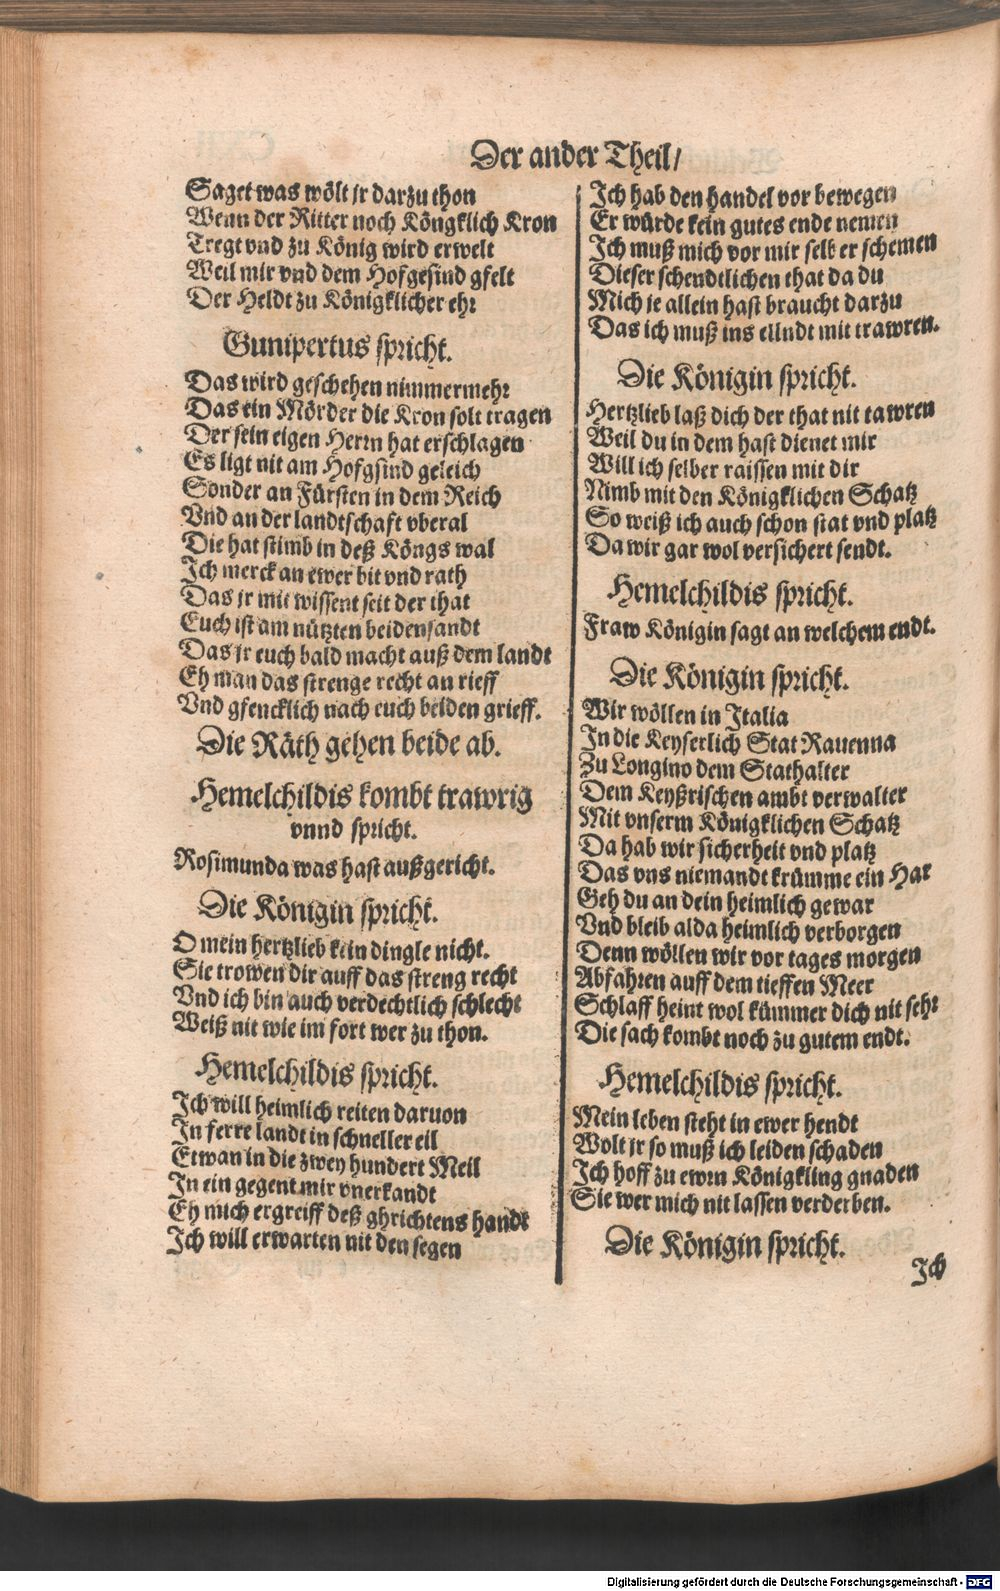 Der ander Theil/
Saget was wölt jr darzu thon
Wenn der Ritter noch Köngklich Kron
Tregt vnd zu König wird erwelt
Weil mir vnd dem Hofgesind gfelt
Der Heldt zu Königklicher ehr
Gunipertus spricht.
Das wird geschehen nimmermehr
Das ein Mörder die Kron solt tragen
Der sein eigen Herrn hat erschlagen
Es ligt nit am Hofgsind geleich
Sonder an Fürsten in dem Reich
Vnd an der landtschaft vberal
Die hat stimb in deß Köngs wal
Ich merck an ewer bit vnd rath
Das jr mit wissent seit der that
Euch ist am nützten beidensandt
Das jr euch bald macht auß dem landt
Eh man das strenge recht an rieff
Vnd gfencklich nach euch beiden grieff.
Die Räth gehen beide ab.
Hemelchildis kombt trawrig
vnnd spricht.
Rosimunda was hast außgericht.
Die Königin spricht.
O mein hertzlieb kein dingle nicht.
Sie trowen dir auff das streng recht
Vnd ich bin auch verdechtlich schlecht
Weiß nit wie im fort wer zu thon.
Hemelchildis spricht.
Ich will heimlich reiten daruon
In ferre landt in schneller eil
Etwan in die zwey hundert Meil
In ein gegent mir vnerkandt
Eh mich ergreiff deß ghrichtens handt
Ich will erwarten nit den segen
Ich hab den handel vor bewegen
Er würde kein gutes ende nemen
Ich muß mich vor mir selb er schemen
Dieser schendtlichen that da du
Mich je allein hast braucht darzu
Das ich muß ins ellndt mit trawren.
Die Königin spricht.
Hertzlieb laß dich der that nit tawren
Weil du in dem hast dienet mir
Will ich selber raissen mit dir
Nimb mit den Königklichen Schatz
So weiß ich auch schon stat vnd platz
Da wir gar wol versichert sendt.
Hemelchildis spricht.
Fraw Königin sagt an welchem endt.
Die Königin spricht.
Wir wöllen in Italia
In die Keyserlich Stat Rauenna
Zu Longino dem Stathalter
Dem Keyßrischen ambt verwalter
Mit vnserm Königklichen Schatz
Da hab wir sicherheit vnd platz
Das vns niemandt krümme ein Har
Geh du an dein heimlich gewar
Vnd bleib alda heimlich verborgen
Denn wöllen wir vor tages morgen
Abfahren auff dem tieffen Meer
Schlaff heint wol kümmer dich nit sehr
Die sach kombt noch zu gutem endt.
Hemelchildis spricht.
Mein leben steht in ewer hendt
Wolt jr so muß ich leiden schaden
Ich hoff zu ewrn Königkling gnaden
Sie wer mich nit lassen verderben.
Die Königin spricht.
Ich
Digitalisierung gefördert durch die Deutsche Forschungsgemeinschaft - DFG